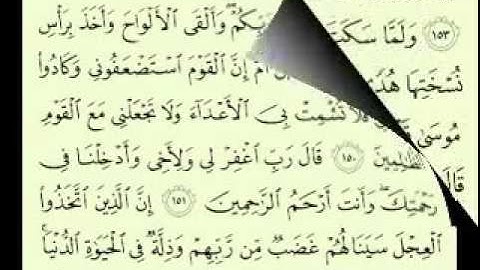 ١٥٣ وَلَمَّا سَكَتَ وَأَلْقَى ٱلْأَلْوَاحَ وَأَخَذَ بِرَأْسِ
نُسْخَتِهَا أُمَّ إِنَّ ٱلْقَوْمَ ٱسْتَضْعَفُونِي وَكَادُوا۟
مُوسَىٰ فَلَا تُشْمِتْ بِيَ ٱلْأَعْدَآءَ وَلَا تَجْعَلْنِي مَعَ ٱلْقَوْمِ
١٥٠ قَالَ رَبِّ ٱغْفِرْ لِي وَلِأَخِي وَأَدْخِلْنَا فِي
رَحْمَتِكَ ۖ وَأَنتَ أَرْحَمُ ٱلرَّٰحِمِينَ ١٥١ إِنَّ ٱلَّذِينَ ٱتَّخَذُوا۟
ٱلْعِجْلَ سَيَنَالُهُمْ غَضَبٌ مِّن رَّبِّهِمْ وَذِلَّةٌ فِي ٱلْحَيَوٰةِ ٱلدُّنْيَا ۚ